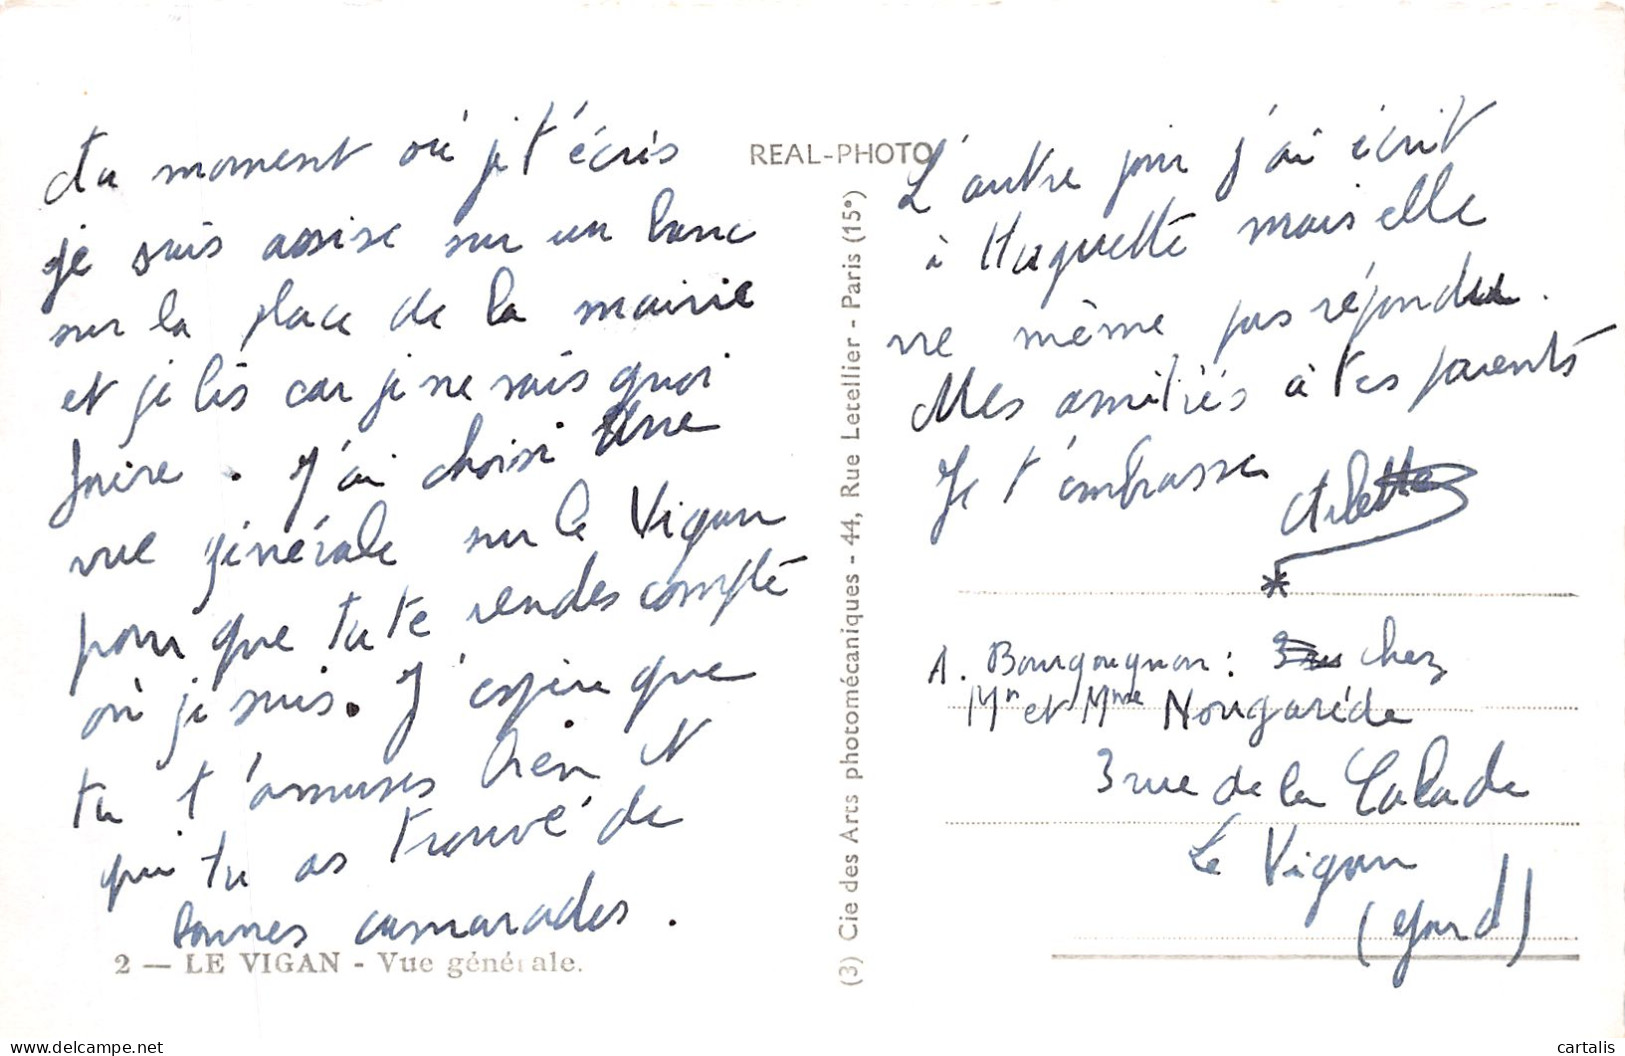 Au moment où j t'écris
je suis assise sur un banc
sur la place de la mairie
et je lis car je ne sais quoi
faire. J'ai choisi une
vue générale sur le Vigan
pour que tu te rendes compte
où je suis. J'espère que
tu t'amuses bien et
que tu as trouvé de
bonnes camarades.
2 — LE VIGAN - Vue générale.
REAL-PHOTO
(3) Cie des Arts photomécaniques - 44, Rue Letellier - Paris (15e)
L'autre jour j'ai écrit
à Huguette mais elle
ne même pas répondu.
Mes amitiés à tes parents
Je t'embrasse
Arlette
*
A. Bourgougnon: chez
Mr et Mme Nougarède
3 rue de la Calade
Le Vigan
(Gard)
cartalis
www.delcampe.net